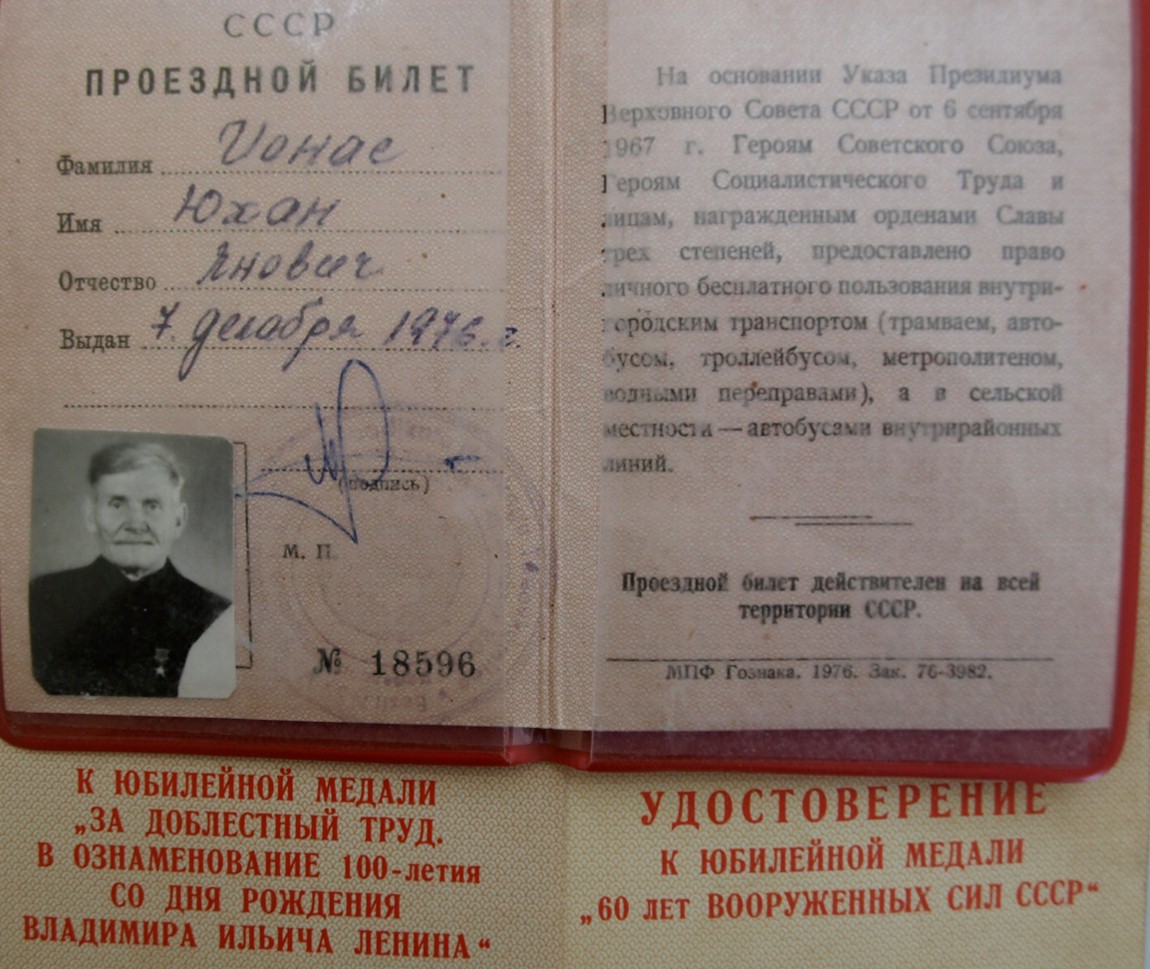 СССР
ПРОЕЗДНОЙ БИЛЕТ
Фамилия Ионас
Имя Юхан
Отчество Янович
Выдан 7 декабря 1976 г.
(подпись)
М. П.
№ 18596
На основании Указа Президиума
Верховного Совета СССР от 6 сентября
1967 г. Героям Советского Союза,
Героям Социалистического Труда и
лицам, награжденным орденами Славы
трех степеней, предоставлено право
личного бесплатного пользования внутри-
городским транспортом (трамваем, авто-
бусом, троллейбусом, метрополитеном,
водными переправами), а в сельской
местности — автобусами внутрирайонных
линий.
Проездной билет действителен на всей
территории СССР.
МПФ Гознака. 1976. Зак. 76-3982.
К ЮБИЛЕЙНОЙ МЕДАЛИ
„ЗА ДОБЛЕСТНЫЙ ТРУД.
В ОЗНАМЕНОВАНИЕ 100-летия
СО ДНЯ РОЖДЕНИЯ
ВЛАДИМИРА ИЛЬИЧА ЛЕНИНА“
УДОСТОВЕРЕНИЕ
К ЮБИЛЕЙНОЙ МЕДАЛИ
„60 лет ВООРУЖЕННЫХ СИЛ СССР“